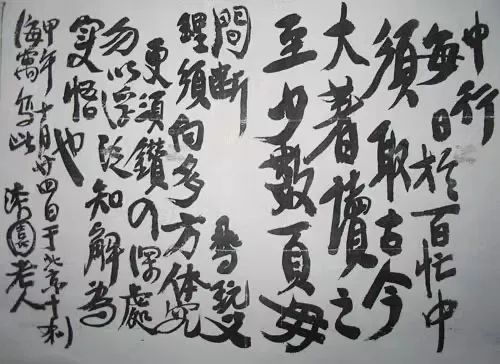 中行
每日於百忙中
須取古今
大著讀之
至少數頁毋
間斷 尋玩義
理須向多方体究
更須鑽入深處
勿以浮泛知解為
實悟也
甲午十月廿四日于北京十刹
海寓写此 漆園老人